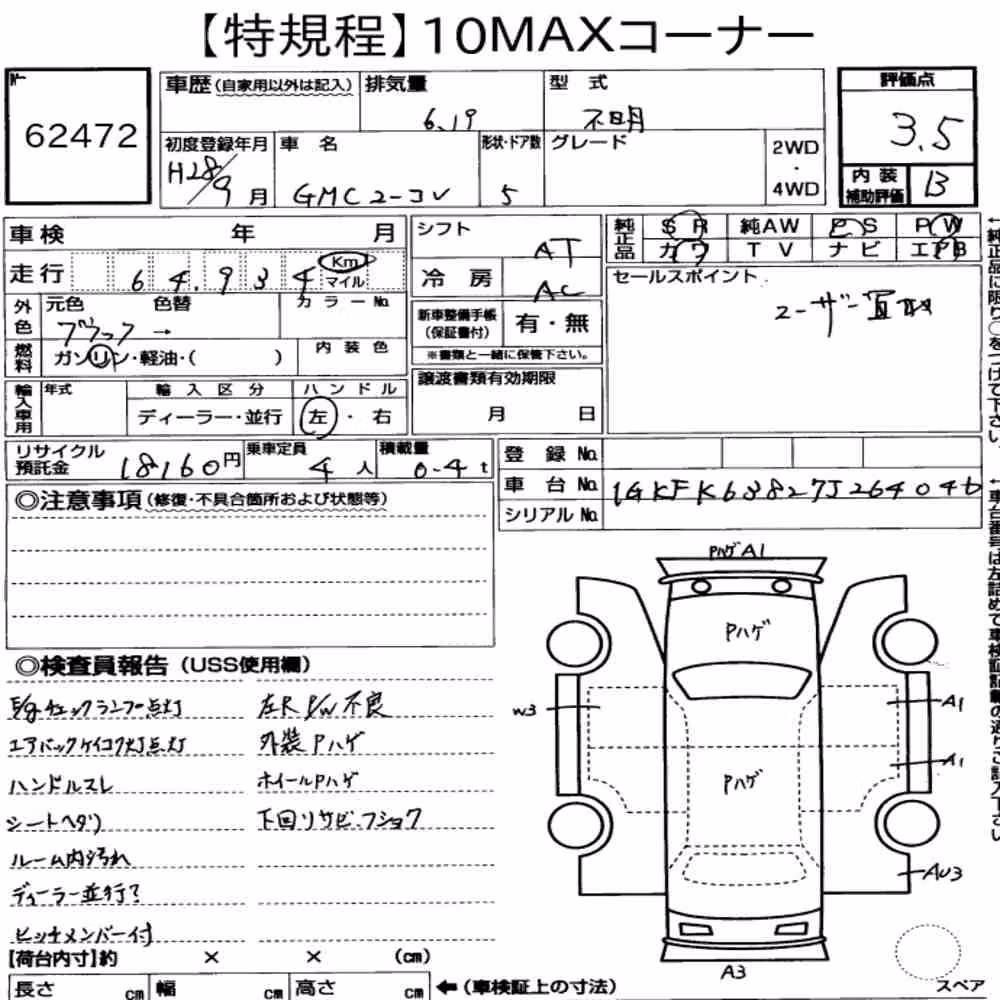 【特規程】10MAXコーナー
62472
車歴(自家用以外は記入) 排気量 型式 評価点
6.19 不明 3.5
初度登録年月 車名 形状・ドア数 グレード 2WD・4WD
H28/9月 GMCユーコン 5
内装補助評価 B
車検 年 月
走行 64,934 Km マイル
外色 元色 色替 カラーNo.
ブラック →
燃料 ガソリン・軽油・( ) 内装色
輸入車用 年式 輸入区分 ハンドル
ディーラー・並行 左・右
リサイクル預託金 18160円 乗車定員 4人 積載量 0.4t
シフト AT
冷房 AC
新車整備手帳(保証書付) 有・無
※書類と一緒に保管下さい。
譲渡書類有効期限
月 日
純正品 SR 純AW PS PW
カワ TV ナビ エアB
セールスポイント
ユーザー買取
←純正品に限り○をつけて下さい。
登録No.
車台No. 1GKFK63827J264046
シリアルNo.
←車台番号は左詰めで車検証記載の通りご記入下さい
◎注意事項(修復・不具合箇所および状態等)
◎検査員報告(USS使用欄)
E/gチェックランプ点灯 左R P/W不良
エアバックケイコク灯点灯 外装Pハゲ
ハンドルスレ ホイールPハゲ
シートヘタリ 下回リサビ・フショク
ルーム内汚れ
ディーラー並行?
ヒッチメンバー付
【荷台内寸】約 × × (cm)
長さ cm 幅 cm 高さ cm ←(車検証上の寸法)
PハゲA1
Pハゲ
W3
A1
A1
Pハゲ
AU3
A3
スペア